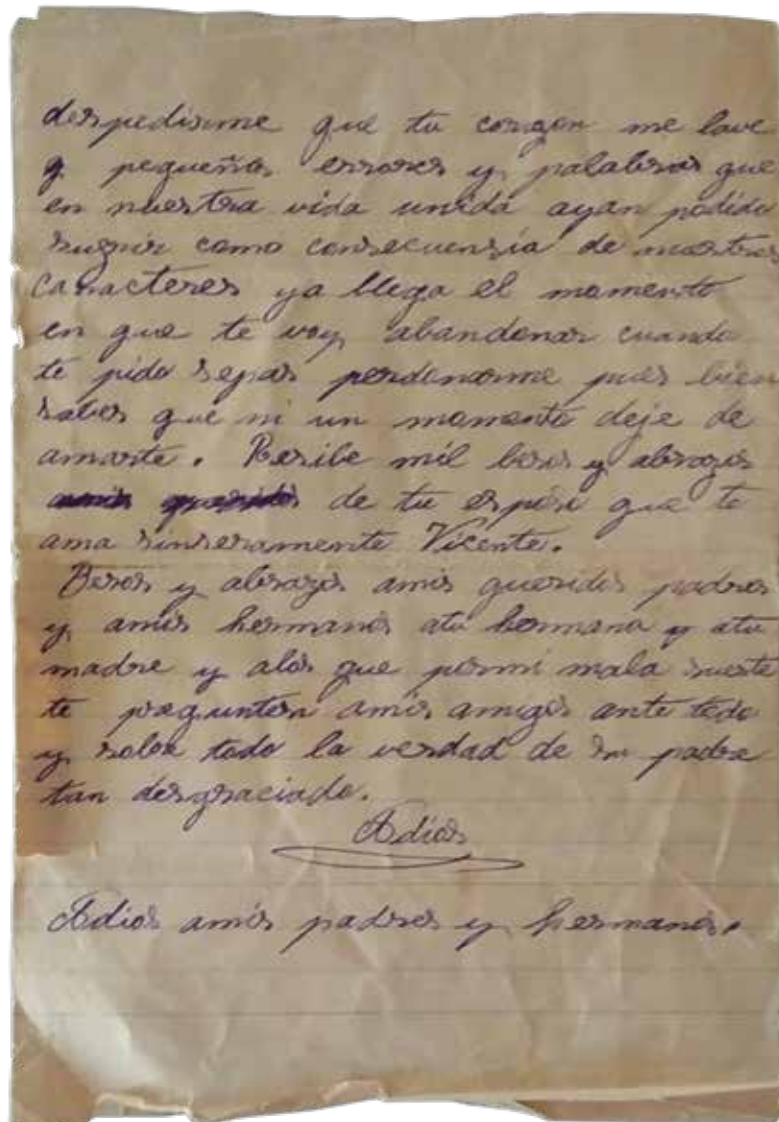 despedirme que tu corazon me lave
q pequeños errores y palabras que
en nuestra vida unida ayan podido
surgir como consecuensia de nuestros
caracteres ya llega el momento
en que te voy abandonar cuando
te pido sepas perdonarme pues bien
sabes que ni un momento deje de
amarte. Resibe mil besos y abrazos
de tu esposo que te
ama sinseramente Vicente.
Besos y abrazos amis queridos padres
y amis hermanos atu hermana y atu
madre y alos que pormi mala suerte
te pregunten amis amigos ante todo
y sobre todo la verdad de su padre
tan desgraciado.
Adios
Adios amis padres y hermanos.